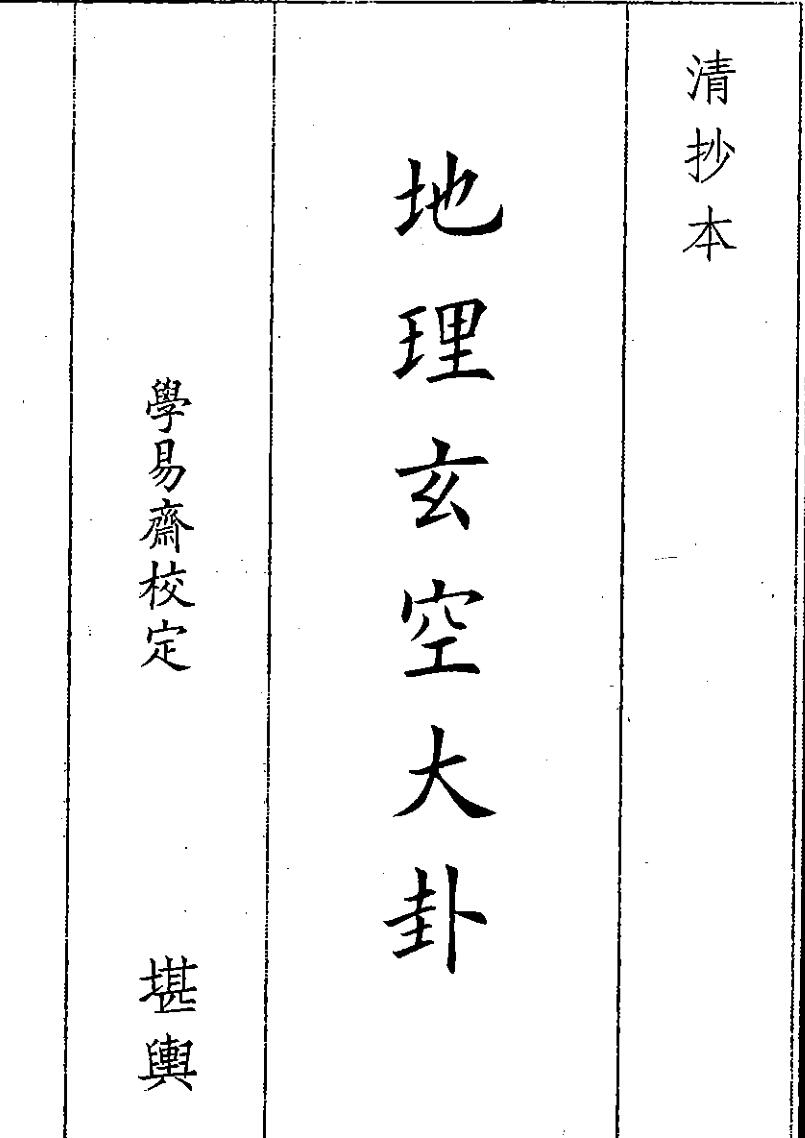 清抄本
地理玄空大卦
學易齋校定
堪輿